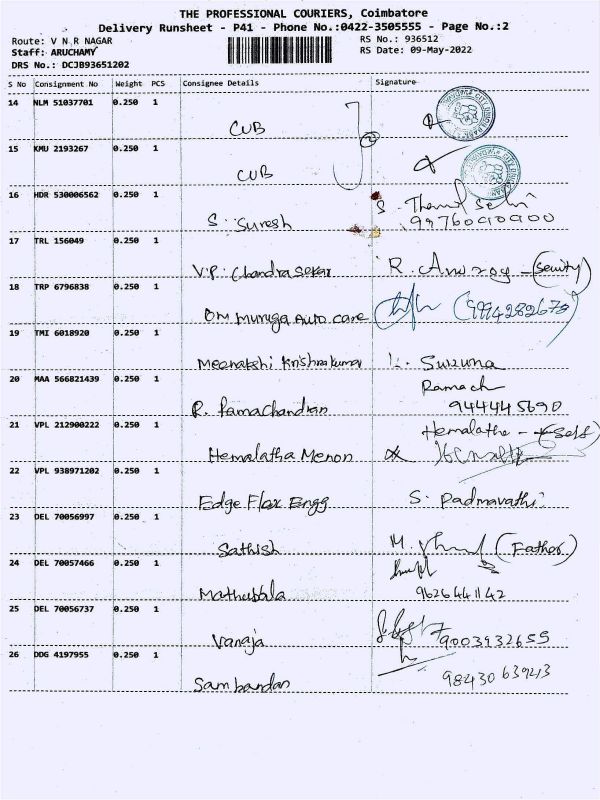 THE PROFESSIONAL COURIERS, Coimbatore
Delivery Runsheet - P41 - Phone No.:0422-3505555 - Page No.:2
Route: V N R NAGAR RS No.: 936512
Staff: ARUCHAMY RS Date: 09-May-2022
DRS No.: DCJB93651202
S No Consignment No Weight PCS Consignee Details Signature
14 NLM 51037701 0.250 1
CUB
15 KMU 2193267 0.250 1
CUB
16 HDR 530006562 0.250 1
S. Suresh
17 TRL 156049 0.250 1
V.P. Chandrasekar R.
18 TRP 6796838 0.250 1
OM Muruga Auto care (9994282678)
19 TMI 6018920 0.250 1
Meenakshi Krishnakumar
20 MAA 566821439 0.250 1 Ramach
R. Ramachandran 944445690
21 VPL 212900222 0.250 1 Hemalatha - (self)
Hemalatha Menon
22 VPL 938971202 0.250 1
Edge Flax Engg S. Padmavathi
23 DEL 70056997 0.250 1
Sathish M. (Father)
24 DEL 70057466 0.250 1
Mathubala 9626441142
25 DEL 70056737 0.250 1
Vanaja 9003932655
26 DDG 4197955 0.250 1
Sambandan